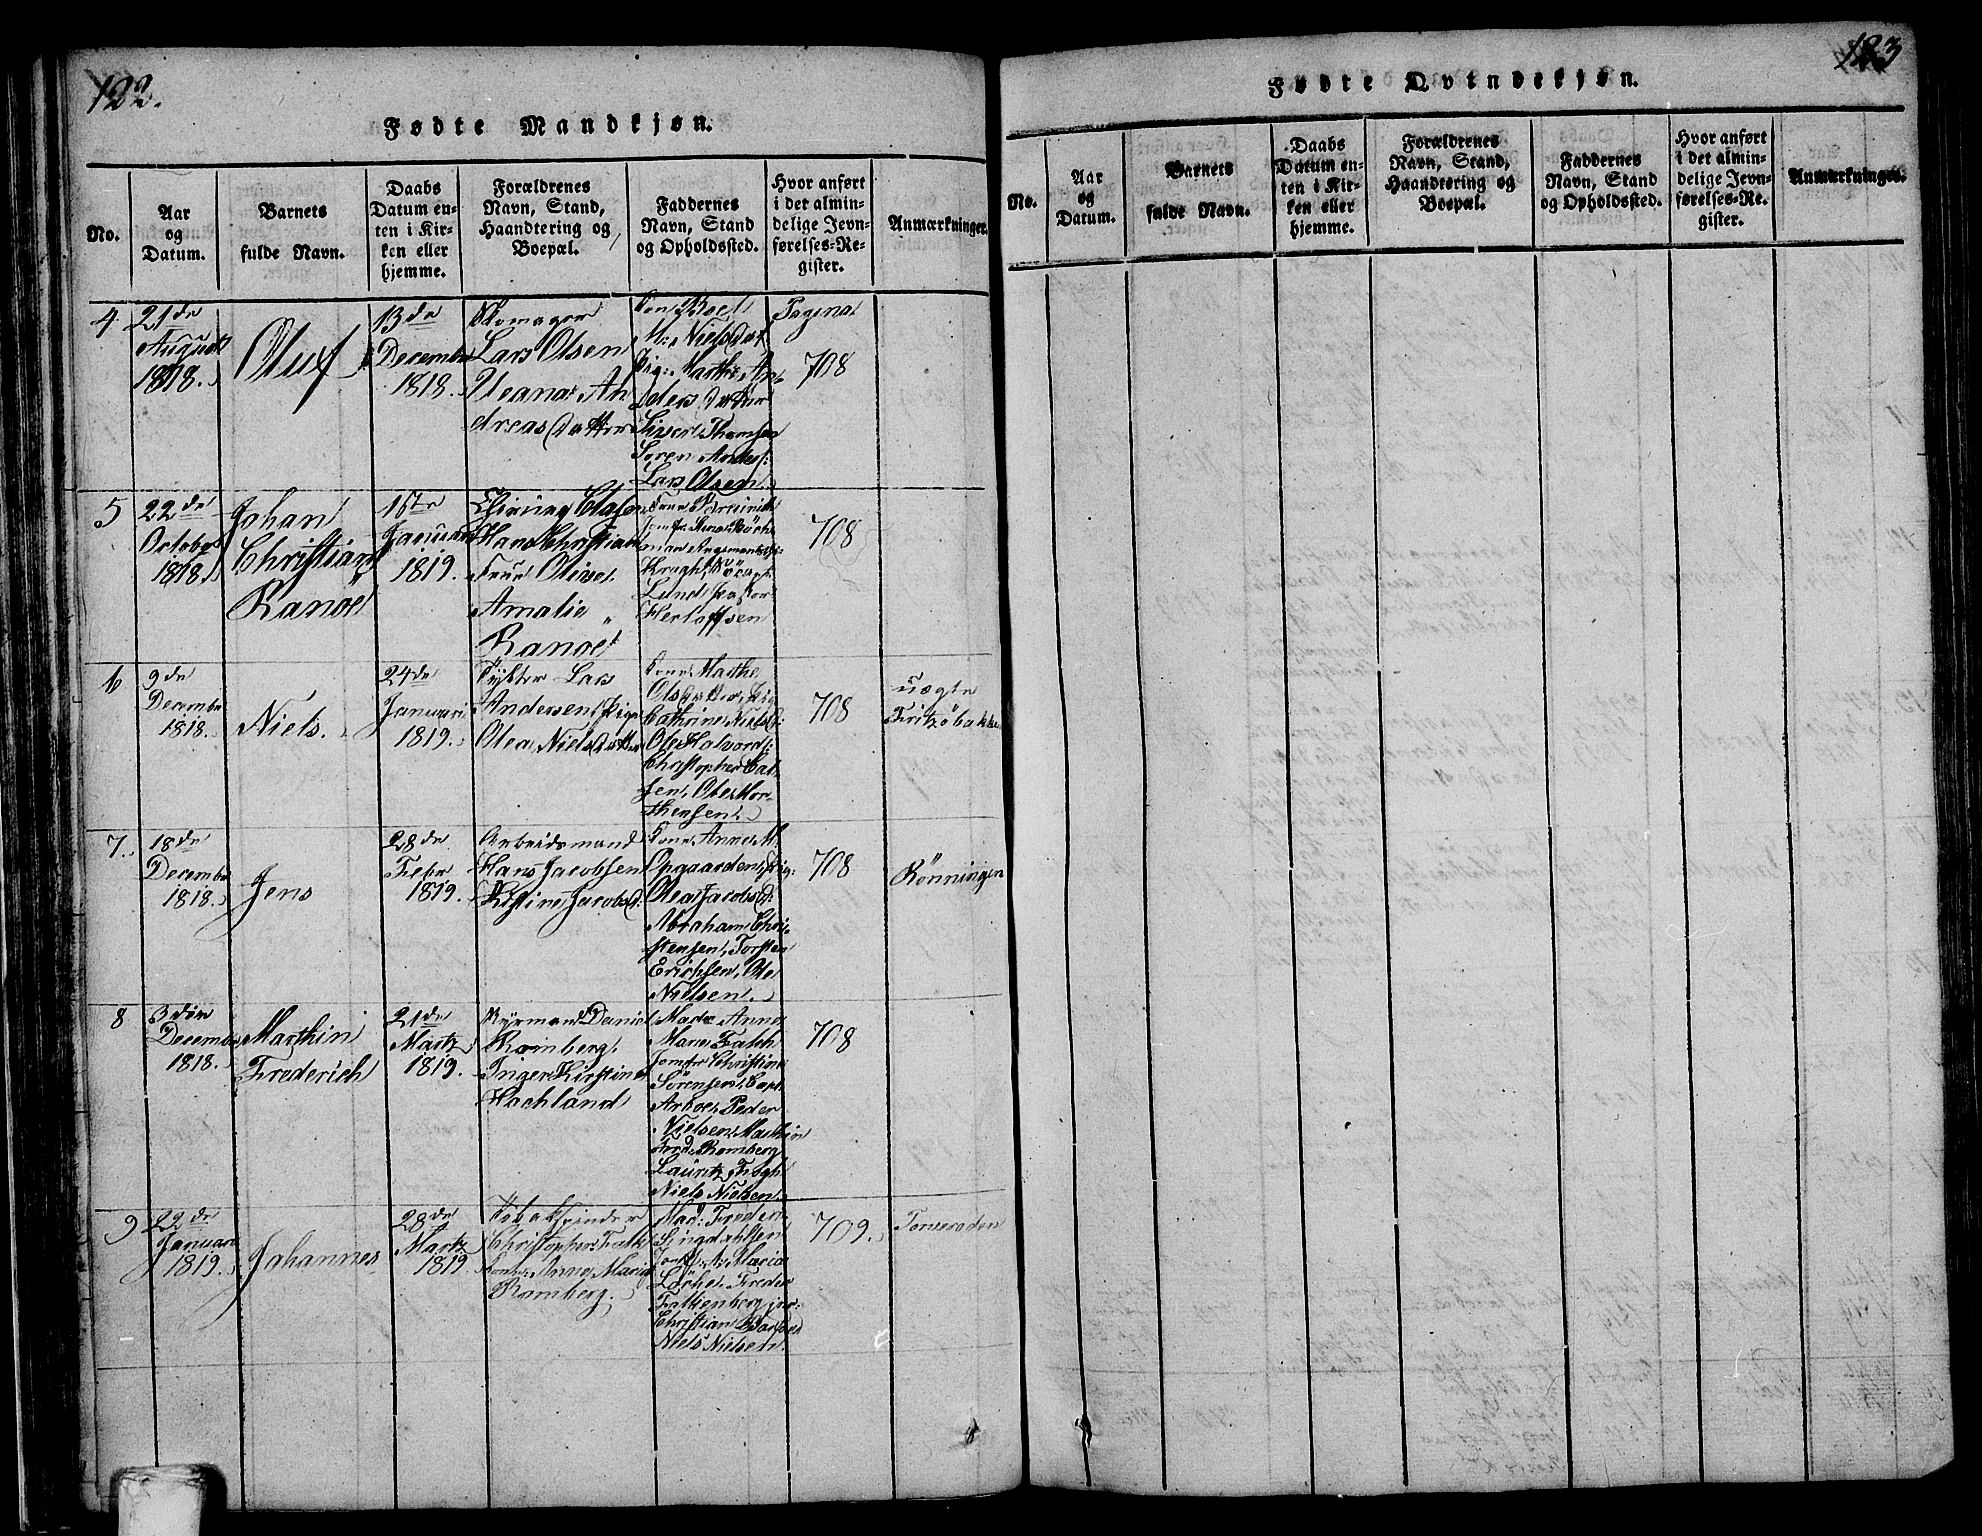 122.
Fødte Mandkjøn.
No.
Aar
og
Datum.
Barnets
fulde Navn.
Daabs
Datum en-
ten i Kir-
ken eller
hjemme.
Forældrenes
Navn, Stand,
Haandtering og
Boepæl.
Faddernes
Navn, Stand
og Opholdssted.
Hvor anført
i det almin-
delige Jevn-
førelses-Re-
gister.
Anmærkninger.
4
21de
August
1818.
Oluf
13de
December
1818.
Skomager
Lars Olsen
An
dreas Datter
Kone Boel
M: Nielsdat
Pig: Marthe An-
ders Datter
Siver Thomsen
Søren Anders:
Lars Olsen
Pagina
708
5
22de
October
1818.
Johan
Christian
Ranoe
1ste
Januar
1819.
Hans Christian
Frue Olive
Amalie
Ranoe
Lund Pastor
Herloffsen
708
6
9de
December
1818.
Niels.
24de
Januari
1819.
Lars
Andersen, Pige
Olea Niels Datter
Kone Marthe
Ols Datter, Pig
Cathrine Niels D:
Ole Halvords:
Christopher Lar-
sen, Ole Mor-
thensen
708
uægte
Fritzöbakke
7.
18de
December
1818.
Jens
28de
Febr
1819.
Arbeidsmand
Hans Jacobsen
Kistine Jacobsd:
Kone Anne M.
Opgaarden, Pig:
Olea Jacobsd:
Abraham Chri-
stensen, Torsten
Erichsen, Ole
Nielsen.
708
Rönningen
8
3die
December
1818.
Marthin
Frederich
21de
Martz
1819.
Styrmand Daniel
Romberg.
Inger Kirstine
Hachland
Mad: Anne
Marie Falch
Jomfr Christine
Sörensen, Capt
Arboe, Peder
Nielsen, Marthin
Fred: Romberg
Lauritz Frogh
Niels Nielsen
708
9
22de
Januari
1819.
Johannes
28de
Martz
1819
Tobakspinder
Christopher Falk
Kone: Anne Maria
Romberg.
Mad: Freder:
Lingdahlsen
Jomf: A: Maria
Freder
Falkenberg jor:
Christian
Niels Nielsen
709.
Torverøden
123
Fødte Qvindekjøn.
No.
Aar
og
Datum.
Barnets
fulde Navn.
Daabs
Datum en-
ten i Kir-
ken eller
hjemme.
Forældrenes
Navn, Stand,
Haandtering og
Boepæl.
Faddernes
Navn, Stand
og Opholdssted.
Hvor anført
i det almin-
delige Jevn-
førelses-Re-
gister.
Anmærkninger.